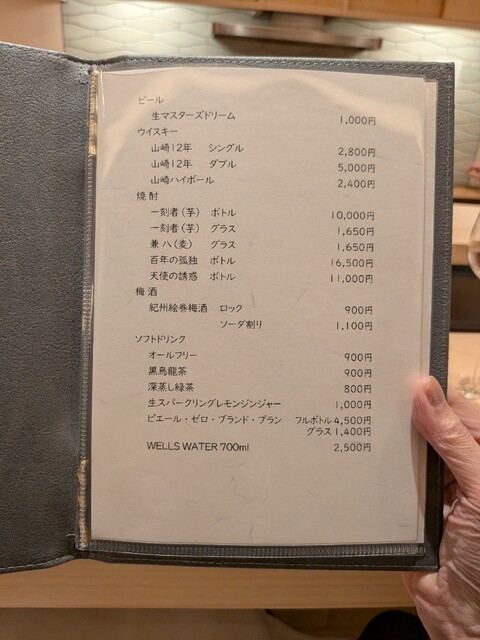 ビール
生マスターズドリーム 1,000円
ウイスキー
山崎12年 シングル 2,800円
山崎12年 ダブル 5,000円
山崎ハイボール 2,400円
焼酎
一刻者(芋) ボトル 10,000円
一刻者(芋) グラス 1,650円
兼八(麦) グラス 1,650円
百年の孤独 ボトル 16,500円
天使の誘惑 ボトル 11,000円
梅酒
紀州絵巻梅酒 ロック 900円
ソーダ割り 1,100円
ソフトドリンク
オールフリー 900円
黒烏龍茶 900円
深蒸し緑茶 800円
生スパークリングレモンジンジャー 1,000円
ピエール・ゼロ・ブランド・ブラン フルボトル 4,500円
グラス 1,400円
WELLS WATER 700ml 2,500円